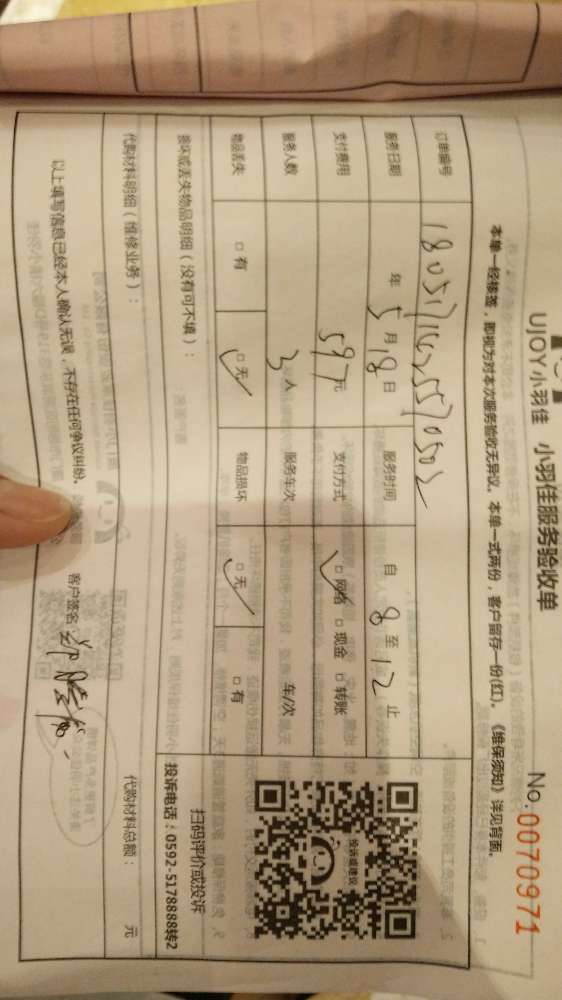 UJOY小羽佳 小羽佳服务验收单
No.0070971
本单一经核签，即视为对本次服务验收无异议。本单一式两份，客户留存一份(红)。《维保须知》详见背面。
订单编号
服务日期 年 5 月 18 日 服务时间 自 8 至 12 止
支付费用 597 元 支付方式 □ 网络 □ 现金 □ 转账
服务人数 3 人 服务车次 车/次
物品丢失 □ 有 □ 无 物品损坏 □ 无 □ 有
损坏或丢失物品明细（没有可不填）：
扫码评价或投诉
投诉电话：0592-5178888转2
投诉或建议
代购材料明细（维修业务）：
代购材料总额： 元
以上填写信息已经本人确认无误，不存在任何争议纠纷。
客户签名：